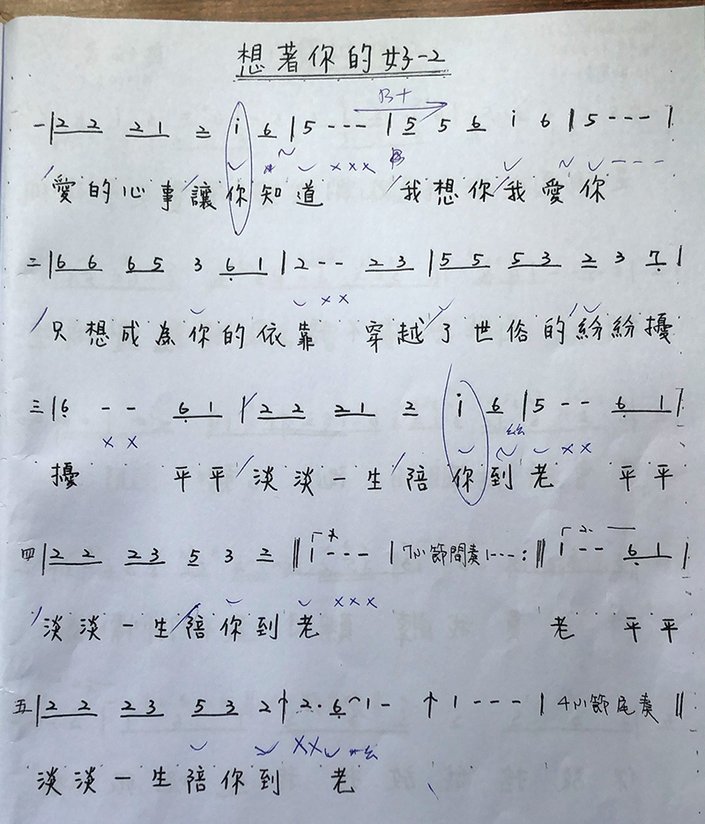 想著你的好-2
B+
一 |2 2 2 1 2 i 6 | 5 - - - | 5 5 6 i 6 | 5 - - - |
愛的心事讓你知道 我想你我愛你
二 |6 6 6 5 3 6 1 | 2 - - 2 3 | 5 5 5 3 2 3 7 |
只想成為你的依靠 穿越了世俗的紛紛擾
三 |6 - - 6 1 | 2 2 2 1 2 i 6 | 5 - - 6 1 |
擾 平平淡淡一生陪你到老 平平
四 |2 2 2 3 5 3 2 || 1 - - - | 7小節間奏 1 - - - :|| 1 - - 6 1 |
淡淡一生陪你到老 老 平平
五 |2 2 2 3 5 3 2 ↑ 2 · 6 1 - ↑ 1 - - - | 4小節尾奏 ||
淡淡一生陪你到 老